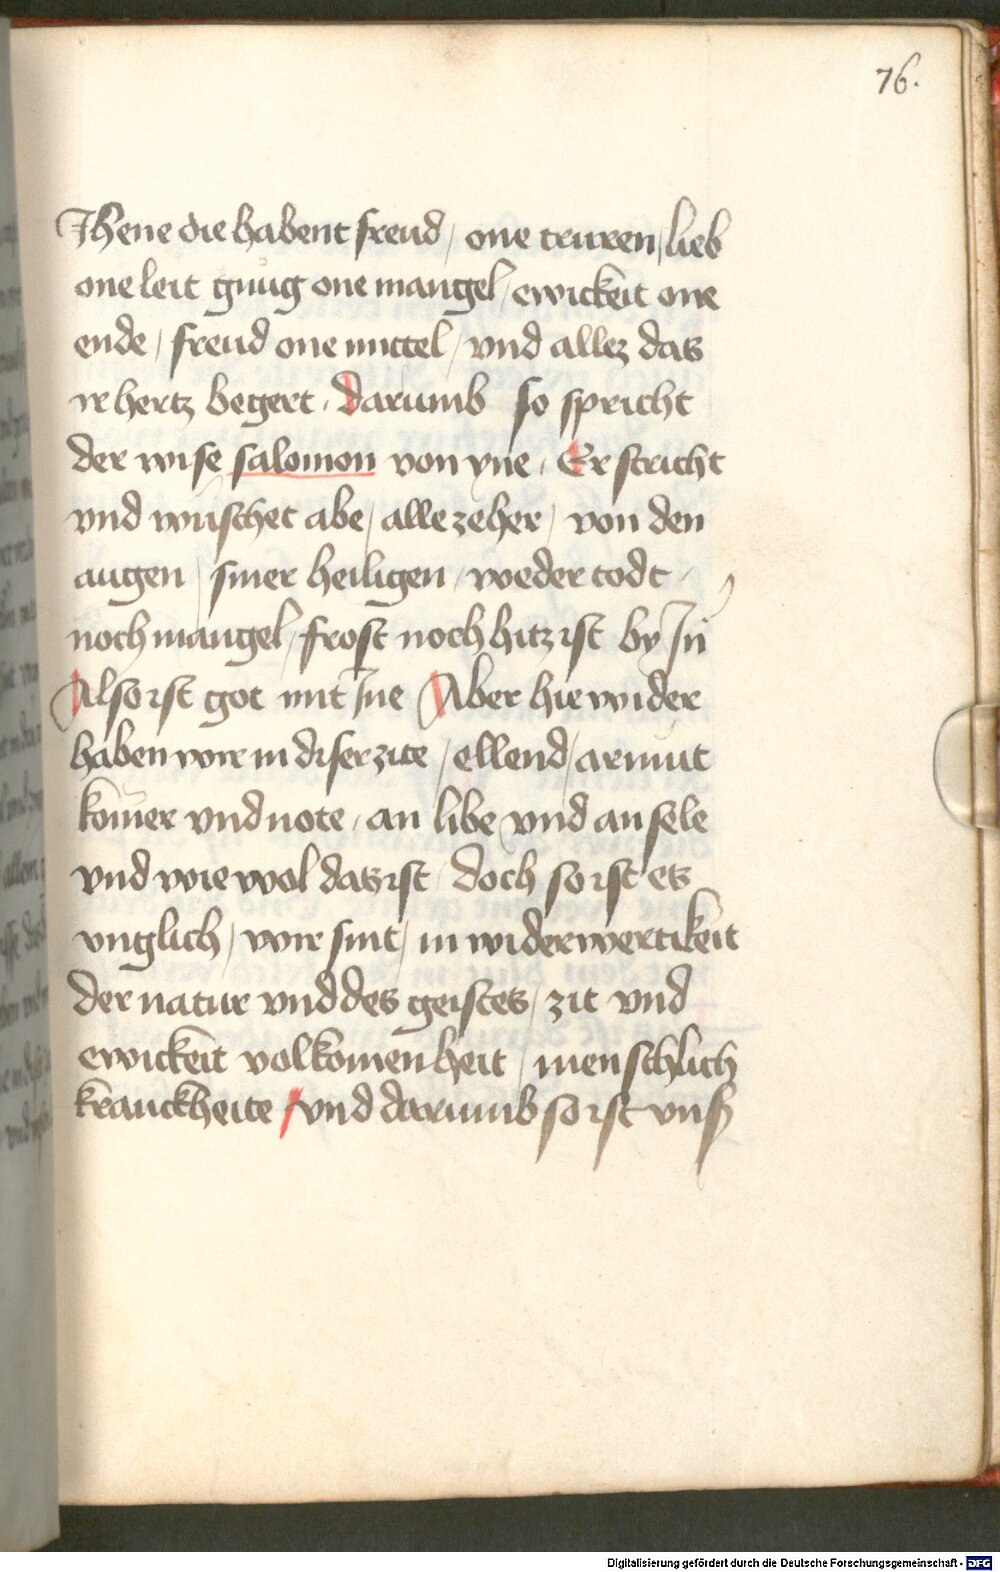 76.
Jhene die habent freud / one truren / lieb
one leit gnůg one mangel / ewickeit one
ende / freud one mittel / vnd allez das
ir hertz begert / darumb so spricht
der wise salomon von yne / Er stricht
vnd wuschet abe / alle zeher / von den
augen / siner heiligen / weder todt /
noch mangel / frost noch hitz ist by Jn
Also ist got mit Jne Aber hie wider
haben wir in diser zite / ellend / armut
komer vnd note / an libe vnd an sele
vnd wie wol das ist / doch so ist es
vnglich / wir sint / in widerwertikeit
der natur vnd des geistes / zit vnd
ewickeit volkomenheit / menschlich
kranckheite / vnd darumb so ist vnß
Digitalisierung gefördert durch die Deutsche Forschungsgemeinschaft - DFG